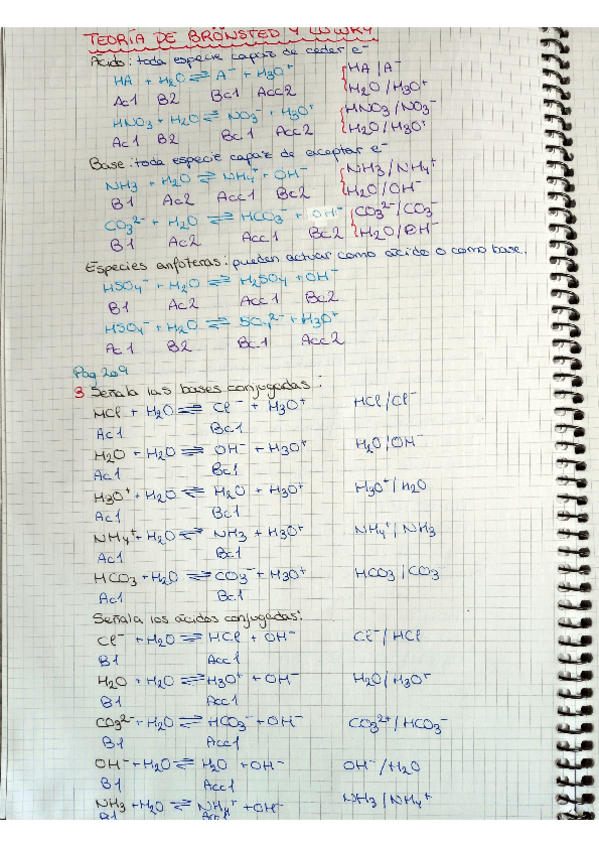 TEORÍA DE BRÖNSTED Y LOWRY
Ácido: toda especie capaz de ceder e⁻
HA + H₂O ⇌ A⁻ + H₃O⁺ HA/A⁻
Ac1 B2 Bc1 Acc2 H₂O/H₃O⁺
HNO₃ + H₂O ⇌ NO₃⁻ + H₃O⁺ HNO₃/NO₃⁻
Ac1 B2 Bc1 Acc2 H₂O/H₃O⁺
Base: toda especie capaz de aceptar e⁻
NH₃ + H₂O ⇌ NH₄⁺ + OH⁻ NH₃/NH₄⁺
B1 Ac2 Acc1 Bc2 H₂O/OH⁻
CO₃²⁻ + H₂O ⇌ HCO₃⁻ + OH⁻ CO₃²⁻/CO₃⁻
B1 Ac2 Acc1 Bc2 H₂O/OH⁻
Especies anfóteras: pueden actuar como ácido o como base.
HSO₄⁻ + H₂O ⇌ H₂SO₄ + OH⁻
B1 Ac2 Acc1 Bc2
HSO₄⁻ + H₂O ⇌ SO₄²⁻ + H₃O⁺
Ac1 B2 Bc1 Acc2
Pag 209
3 Señala las bases conjugadas:
HCl + H₂O ⇌ Cl⁻ + H₃O⁺ HCl/Cl⁻
Ac1 Bc1
H₂O + H₂O ⇌ OH⁻ + H₃O⁺ H₂O/OH⁻
Ac1 Bc1
H₃O⁺ + H₂O ⇌ H₂O + H₃O⁺ H₃O⁺/H₂O
Ac1 Bc1
NH₄⁺ + H₂O ⇌ NH₃ + H₃O⁺ NH₄⁺/NH₃
Ac1 Bc1
HCO₃ + H₂O ⇌ CO₃⁻ + H₃O⁺ HCO₃/CO₃
Ac1 Bc1
Señala los ácidos conjugados:
Cl⁻ + H₂O ⇌ HCl + OH⁻ Cl⁻/HCl
B1 Acc1
H₂O + H₂O ⇌ H₃O⁺ + OH⁻ H₂O/H₃O⁺
B1 Acc1
CO₃²⁻ + H₂O ⇌ HCO₃⁻ + OH⁻ CO₃²⁺/HCO₃⁻
B1 Acc1
OH⁻ + H₂O ⇌ H₂O + OH⁻ OH⁻/H₂O
B1 Acc1
NH₃ + H₂O ⇌ NH₄⁺ + OH⁻ NH₃/NH₄⁺
B1 Acc1